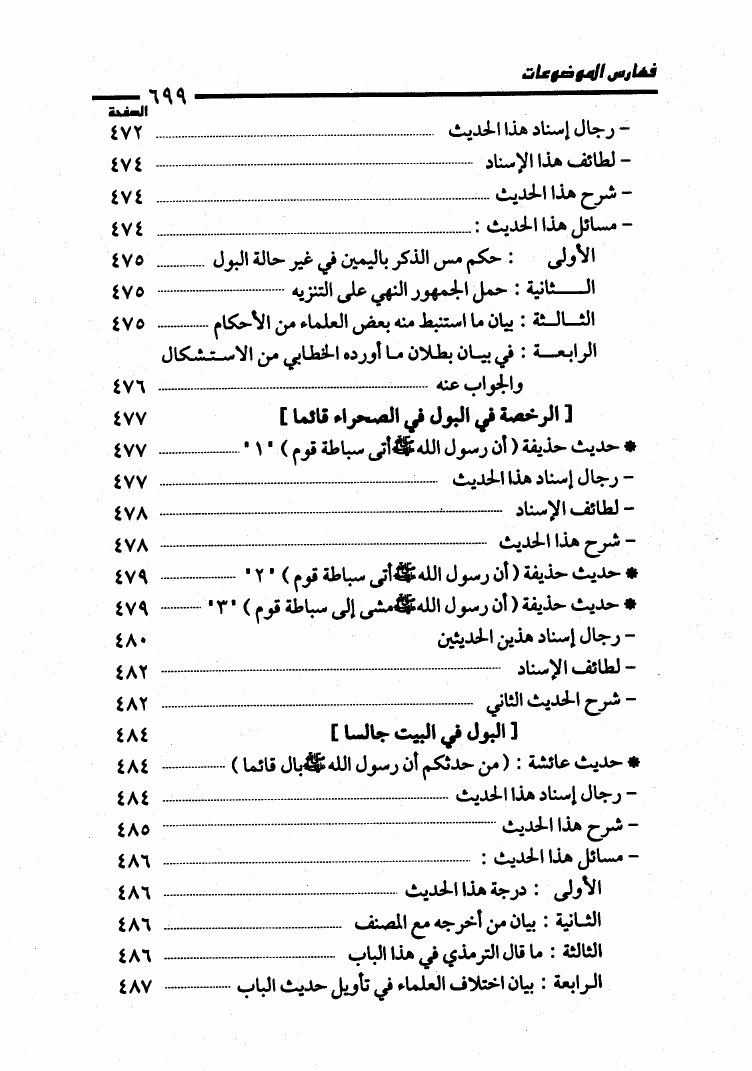 فهارس الموضوعات
٦٩٩
الصفحة
- رجال إسناد هذا الحديث ٤٧٢
- لطائف هذا الإسناد ٤٧٤
- شرح هذا الحديث ٤٧٤
- مسائل هذا الحديث : ٤٧٤
الأولى : حكم مس الذكر باليمين في غير حالة البول ٤٧٥
الـــثانية : حمل الجمهور النهي على التنزيه ٤٧٥
الثـالـثة : بيان ما استنبط منه بعض العلماء من الأحكام ٤٧٥
الرابعـــة : في بيـان بطلان مـا أورده الخطابي من الاستـشكال
والجواب عنه ٤٧٦
[ الرخصة في البول في الصحراء قائما ] ٤٧٧
* حديث حذيفة ( أن رسول الله ﷺ أتى سباطة قوم ) "١" ٤٧٧
- رجال إسناد هذا الحديث ٤٧٧
- لطائف الإسناد ٤٧٨
- شرح هذا الحديث ٤٧٨
* حديث حذيفة ( أن رسول الله ﷺ أتى سباطة قوم ) "٢" ٤٧٩
* حديث حذيفة ( أن رسول الله ﷺ مشى إلى سباطة قوم ) "٣" ٤٧٩
- رجال إسناد هذين الحديثين ٤٨٠
- لطائف الإسناد ٤٨٢
- شرح الحديث الثاني ٤٨٢
[ البول في البيت جالسا ] ٤٨٤
* حديث عائشة : ( من حدثكم أن رسول الله ﷺ بال قائما ) ٤٨٤
- رجال إسناد هذا الحديث ٤٨٤
- شرح هذا الحديث ٤٨٥
- مسائل هذا الحديث : ٤٨٦
الأولى : درجة هذا الحديث ٤٨٦
الثـانية : بيان من أخرجه مع المصنف ٤٨٦
الثالثة : ما قال الترمذي في هذا الباب ٤٨٦
الـرابعة : بيان اختلاف العلماء في تأويل حديث الباب ٤٨٧